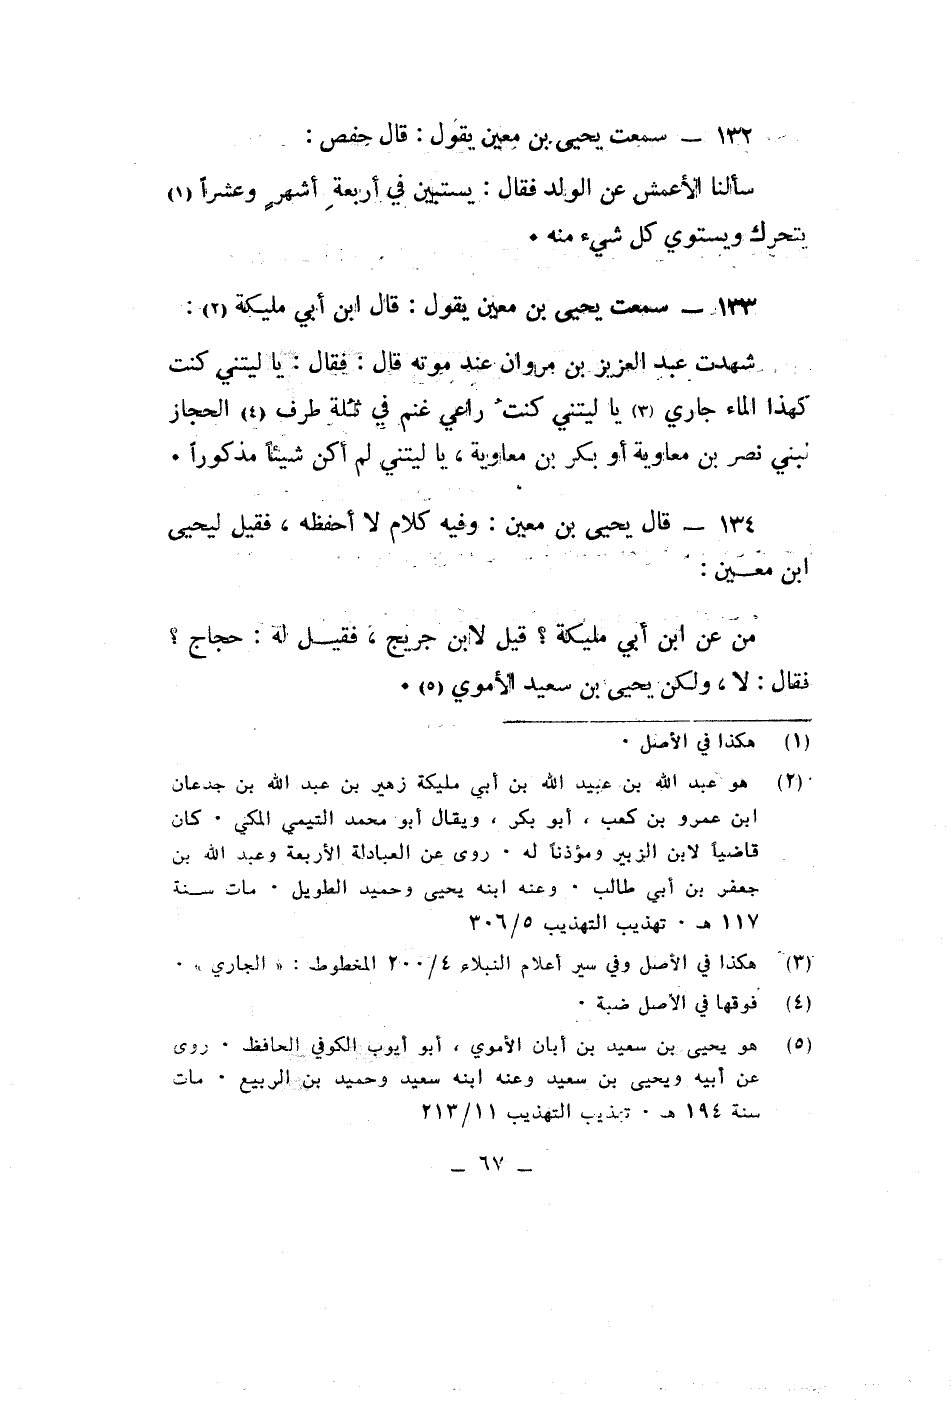 ١٣٢ ــ سمعت يحيى بن معين يقول : قال حفص :
سألنا الأعمش عن الولد فقال : يستبين في أربعة أشهرٍ وعشراً (١)
يتحرك ويستوي كل شيء منه ٠
١٣٣ ــ سمعت يحيى بن معين يقول : قال ابن أبي مليكة (٢) :
شهدت عبد العزيز بن مروان عند موته قال : فقال : يا ليتني كنت
كهذا الماء جاري (٣) يا ليتني كنت راعي غنم في ثلة طرف (٤) الحجاز
نبني نصر بن معاوية أو بكر بن معاوية ، يا ليتني لم أكن شيئاً مذكوراً ٠
١٣٤ ــ قال يحيى بن معين : وفيه كلام لا أحفظه ، فقيل ليحيى
ابن معـين :
من عن ابن أبي مليكة ؟ قيل لابن جريج ، فقيـل له : حجاج ؟
فقال : لا ، ولكن يحيى بن سعيد الأموي (٥) ٠
(١) هكذا في الأصل ٠
(٢) هو عبد الله بن عبيد الله بن أبي مليكة زهير بن عبد الله بن جدعان
ابن عمرو بن كعب ، أبو بكر ، ويقال أبو محمد التيمي المكي ٠ كان
قاضياً لابن الزبير ومؤذناً له ٠ روى عن العبادلة الأربعة وعبد الله بن
جعفر بن أبي طالب ٠ وعنه ابنه يحيى وحميد الطويل ٠ مات سـنة
١١٧ هـ ٠ تهذيب التهذيب ٣٠٦/٥
(٣) هكذا في الأصل وفي سير أعلام النبلاء ٢٠٠/٤ المخطوط : « الجاري » ٠
(٤) فوقها في الأصل ضبة ٠
(٥) هو يحيى بن سعيد بن أبان الأموي ، أبو أيوب الكوفي الحافظ ٠ روى
عن أبيه ويحيى بن سعيد وعنه ابنه سعيد وحميد بن الربيع ٠ مات
سنة ١٩٤ هـ ٠ تهذيب التهذيب ٢١٣/١١
ــ ٦٧ ــ